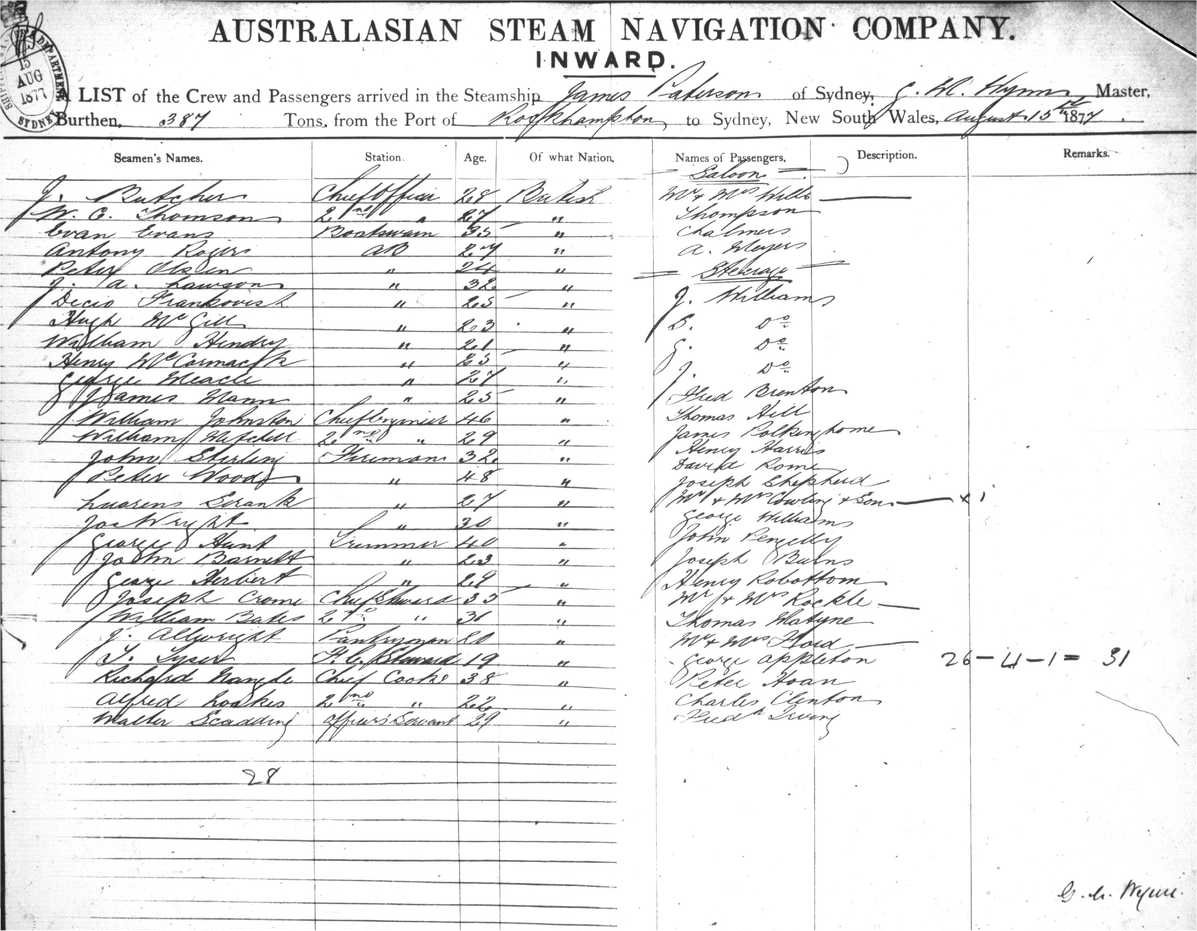 AUSTRALASIAN STEAM NAVIGATION COMPANY.
INWARD.
15
AUG
1877
SYDNEY
A LIST of the Crew and Passengers arrived in the Steamship James Paterson of Sydney, Wynn Master,
Burthen, 387 Tons, from the Port of Rockhampton to Sydney, New South Wales, August 15th 1877.
Seamen's Names. Station. Age. Of what Nation. Names of Passengers, Description. Remarks.
Saloon
J. Butcher Chief Officer 28 British Mr & Mrs Wills
W. C. Thomson 2nd " 27 " Thompson
Evan Evans Boatswain 35 " Chalmers
Antony Rogers AB 27 " A. Meyers
Peter " 24 " Steerage
J. A. Lawson " 32 "
Decio Frankovish " 25 " J. Williams
Hugh McGill " 23 " B. Do
William Hendry " 21 " G. Do
Henry McCormack " 25 " J. Do
George Meacle " 27 "
James Mann " 25 " Fred Brenton
William Johnston Chief Engineer 46 " Thomas Hill
William Mitchell 2nd " 29 " James Polkinghorne
John Stirling Fireman 32 " Henry Harris
Peter Woods " 48 " David Rome
Joseph Shepherd
" 27 " Mr & Mrs Cowling & Son x 1
Jas Wright " 30 " George Williams
George Hunt Trimmer 40 " John Pengelly
John Barnett " 23 " Joseph Burns
George Herbert " 29 " Henry Robottom
Joseph Crome Chief Steward 35 " Mr & Mrs Rockle
William Bates 2nd " 36 " Thomas Matyne
J. Allwright Pantryman 20 " Mr & Mrs Floid
T. Tyser F. C. Steward 19 " George Appleton 26 - 4 - 1 = 31
Richard Nangle Chief Cook 38 " Peter Hoan
Alfred 2nd " 22 " Charles Clenton
Walter Scadding Officers Servant 29 " Fredk Irving
28
G. M. Wynn.